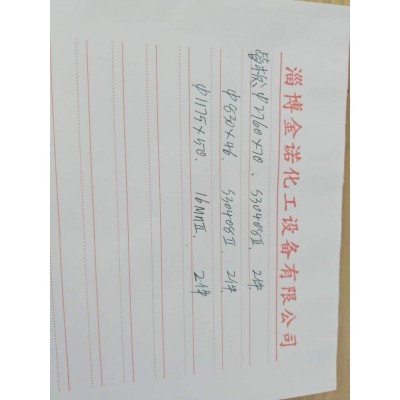 淄博金诺化工设备有限公司
管板 φ2760×70. S30408Ⅱ. 2件.
φ830×46. S30408Ⅱ. 2件.
φ1175×50. 16MnⅡ. 2件